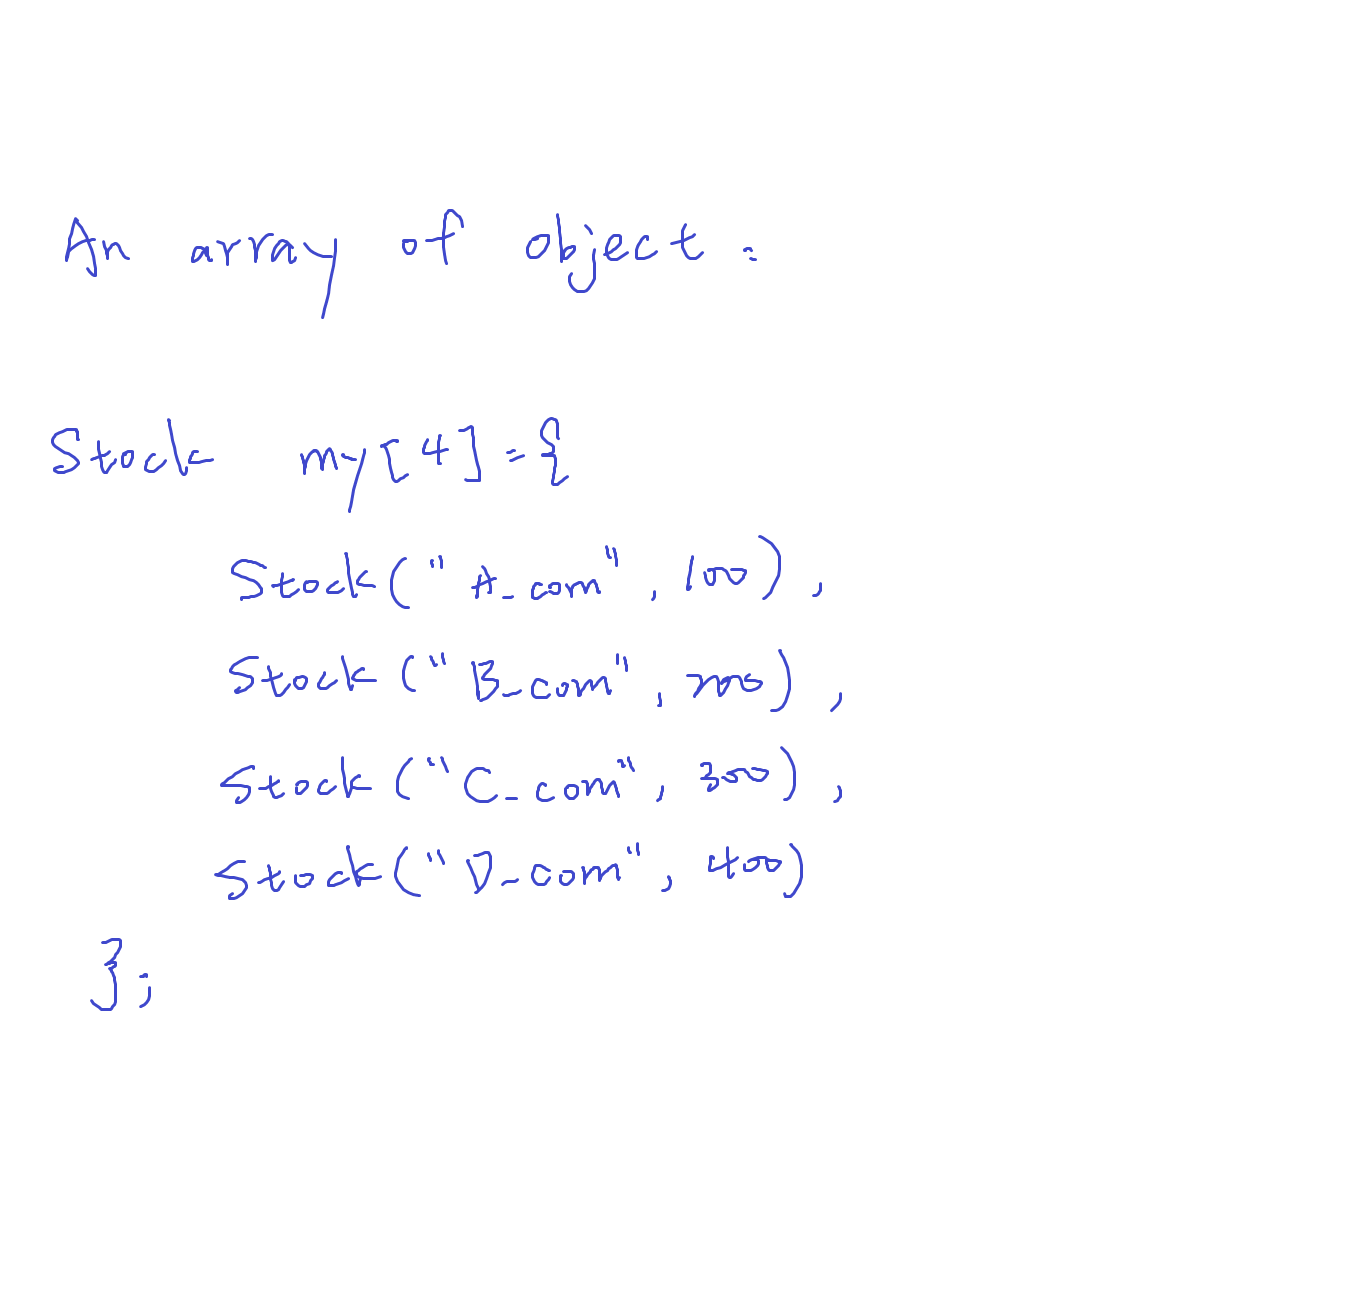 An array of object:
Stock my[4]={
Stock("A_com", 100),
Stock("B_com", 200),
Stock("C_com", 300),
Stock("D_com", 400)
};